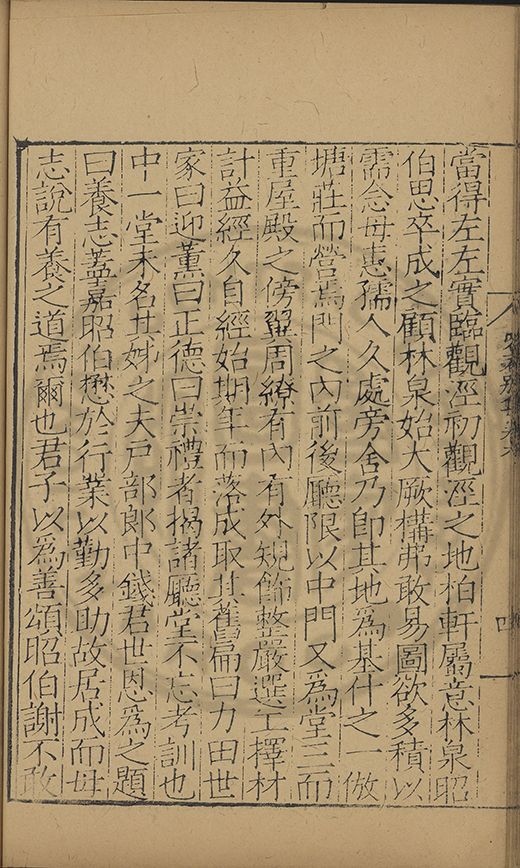 當得左左實臨觀涇初觀涇之地柏軒屬意林泉昭
伯思卒成之顧林泉始大厥構弗敢易圖欲多積以
需念毋惠孺人久處旁舍乃即其地爲基什之一倣
塘莊而營焉門之內前後廳限以中門又爲堂三而
重屋殿之傍翼周繚有內有外規飾整嚴選工擇材
計益經久自經始期年而落成取其舊扁曰力田世
家曰迎薰曰正德曰崇禮者揭諸廳堂不忘考訓也
中一堂未名其姊之夫戶部郎中錢君世恩爲之題
曰養志葢嘉昭伯懋於行業以勤多助故居成而毋
志說有養之道焉爾也君子以爲善頌昭伯謝不敢